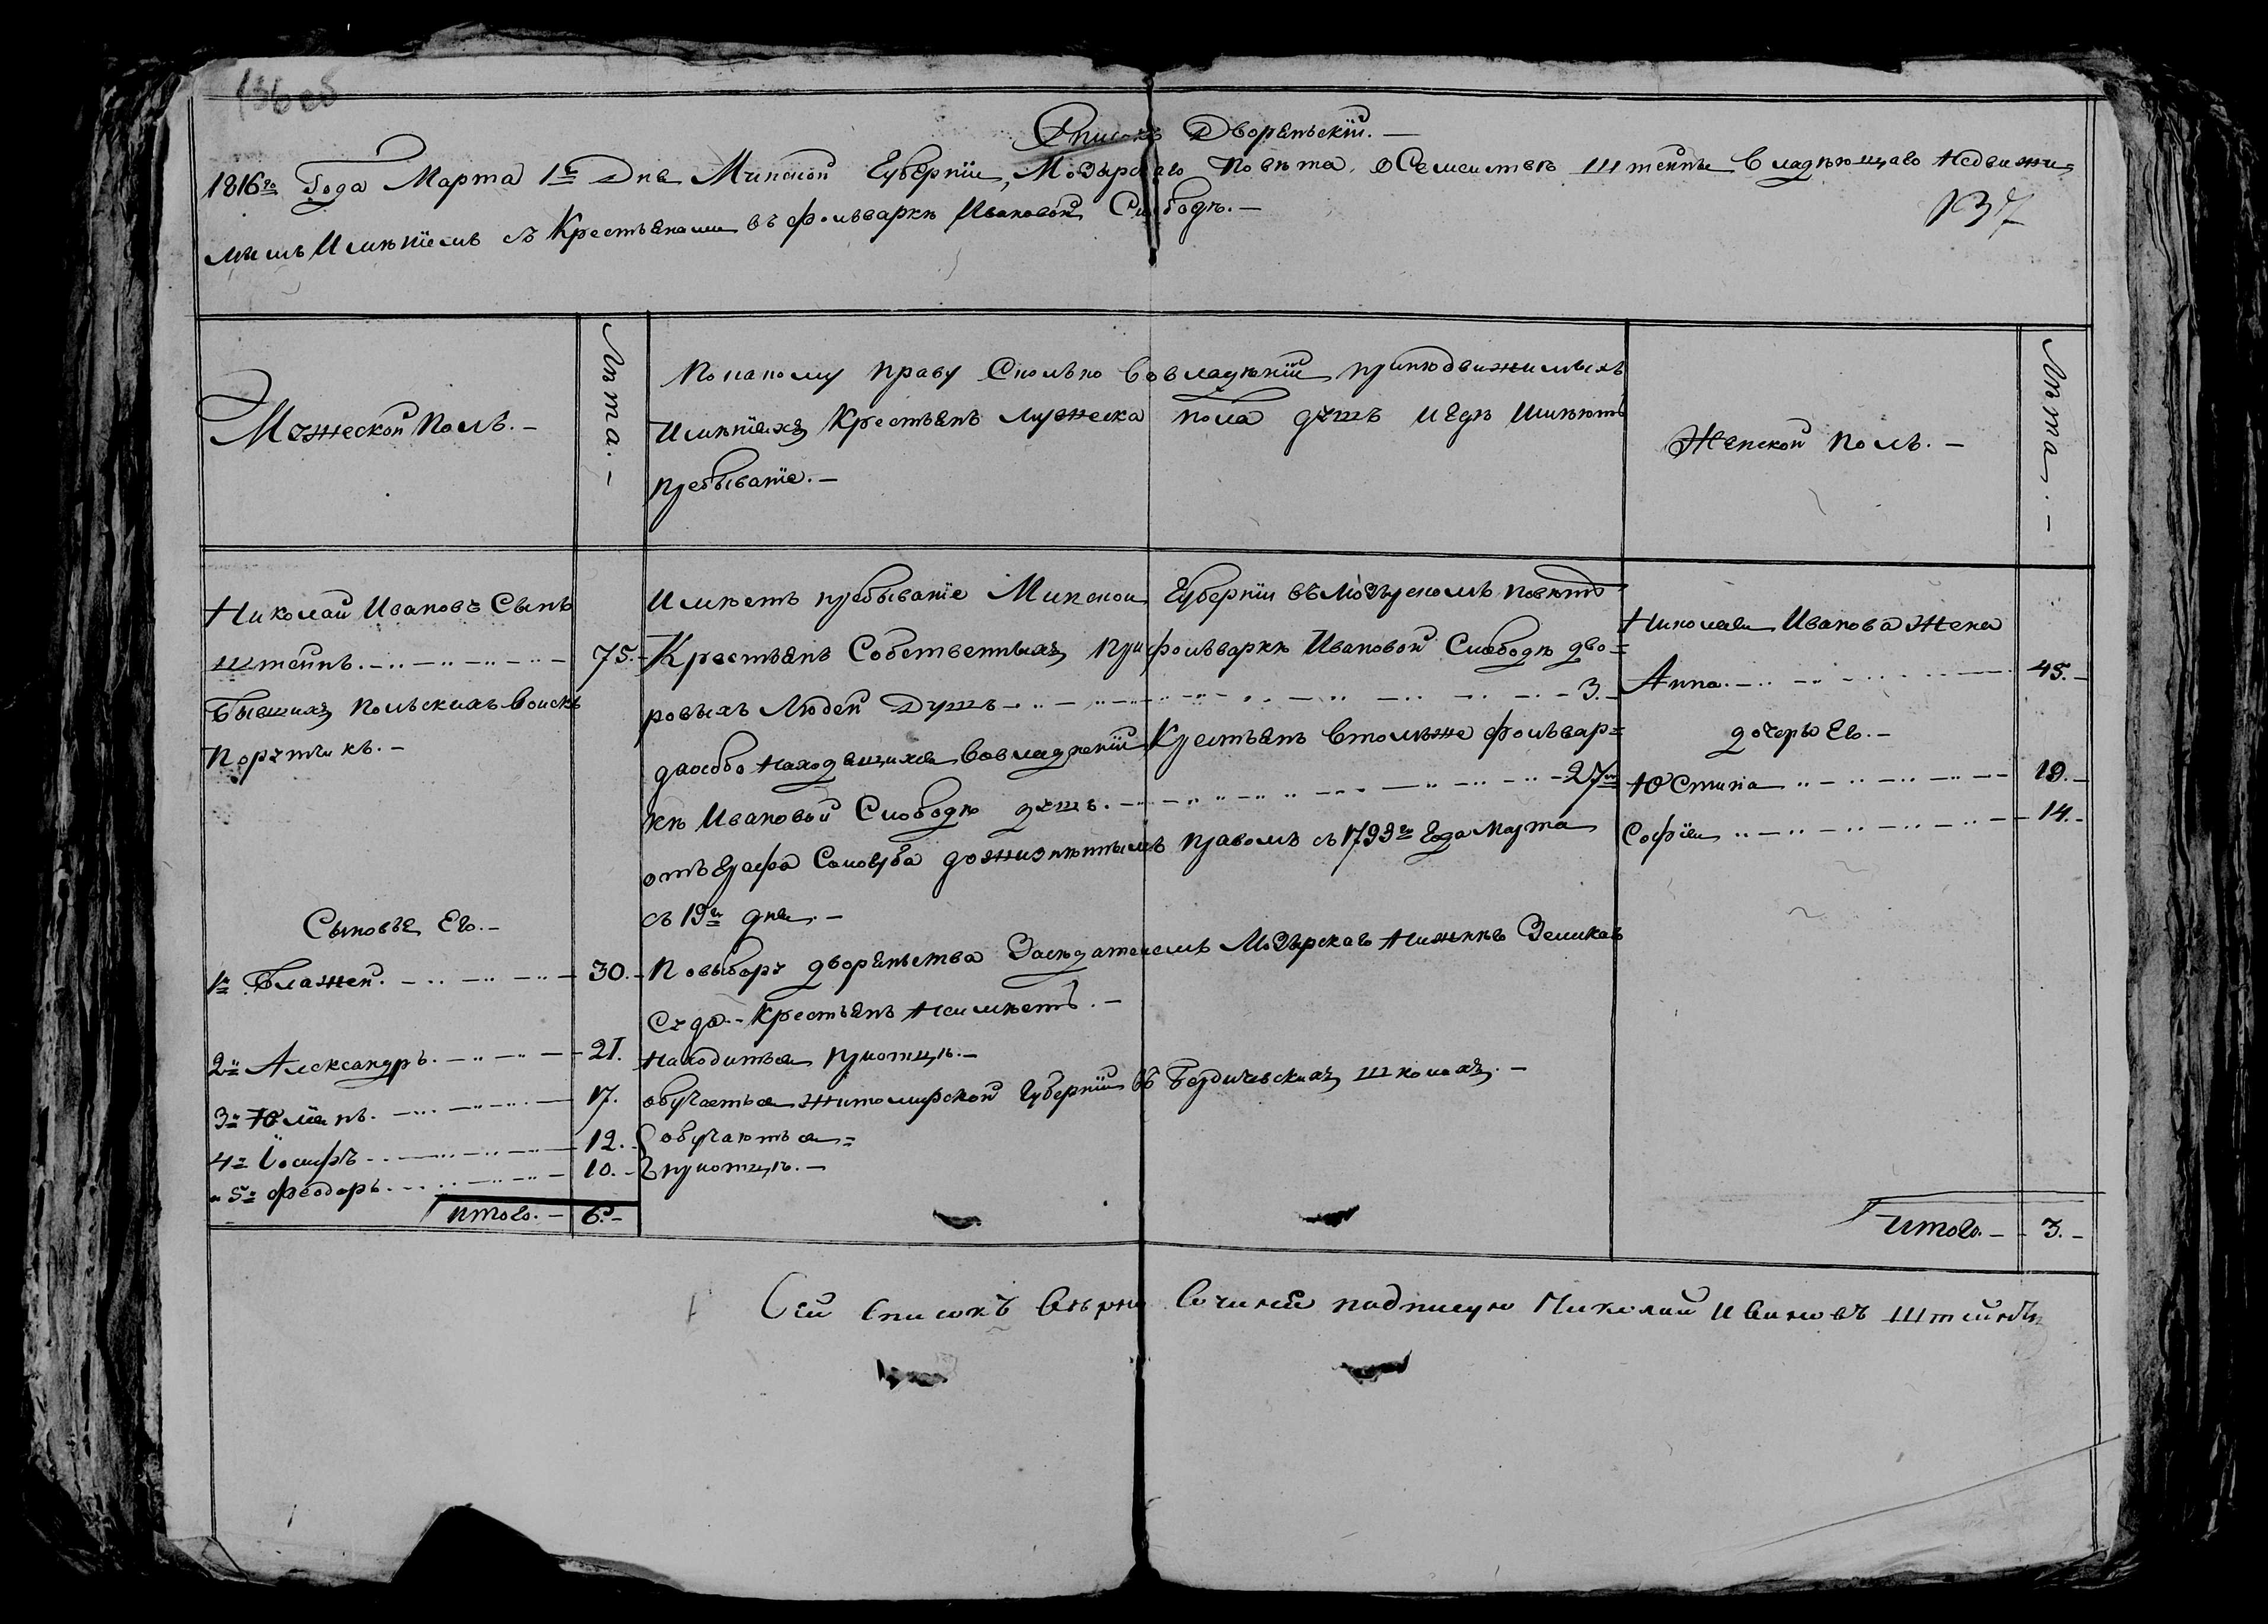 136 об
Списокъ Дворѧньскїй. —
1816го Года Марта 1го Дня Минской Губернїи, Мозырскаго Повѣта, о Семействѣ Штейна Владѣющаго Недвижи=
137
мымъ Имѣнїемъ съ Крестьянами въ фольваркѣ Ивановой Слободѣ. —
Мужеской Полъ. —
Лѣта. —
По какому праву Сколько во владѣнїи при недвижимыхъ
Имѣнїяхъ Крестьянъ мужеска пола душъ и гдѣ Имѣютъ
пребыванїе. —
Женской Полъ. —
Лѣта. —
Николай Ивановъ Сынъ
Штейнъ. 75. —
Бывшихъ Польскихъ войскъ
Поручикъ. —
Имѣетъ пребыванїе Минской Губернїи въ Мозырскомъ повѣтѣ
Крестьянъ Собственныхъ при фольваркѣ Ивановой Слободѣ дво=
ровыхъ Людей Душъ 3. —
да особо Находящихся во владѣнїи Крестьянъ в томъ же фольвар=
кѣ Ивановой Слободѣ душъ. 27м
отъ Графа Сологуба дожизнѣннымъ правомъ съ 1799го Года Марта
съ 19го дня. —
Николая Иванова Жена
Анна. 45. —
дочеры Его. —
Юстина 19. —
Софїя 14. —
Сыновья Его. —
1й Блажей. 30. —
По выбору дворяньства Засѣдателемъ Мозырскаго Нижняго Земскаго
Суда. — Крестьянъ Неимѣетъ. —
2й Александръ. 21.
Находится при отцѣ. —
3й Юлїянъ. 17.
обучается Житомирской Губернїи въ Бердичевскихъ школахъ. —
4й Iосифъ 12.
обучаются =
5й Феодоръ. 10. —
при отцѣ. —
Итого. — 6. —
Итого. — 3. —
Сей Списокъ Вѣрно Сочиненъ подписую Николай Ивановъ Штейнъ